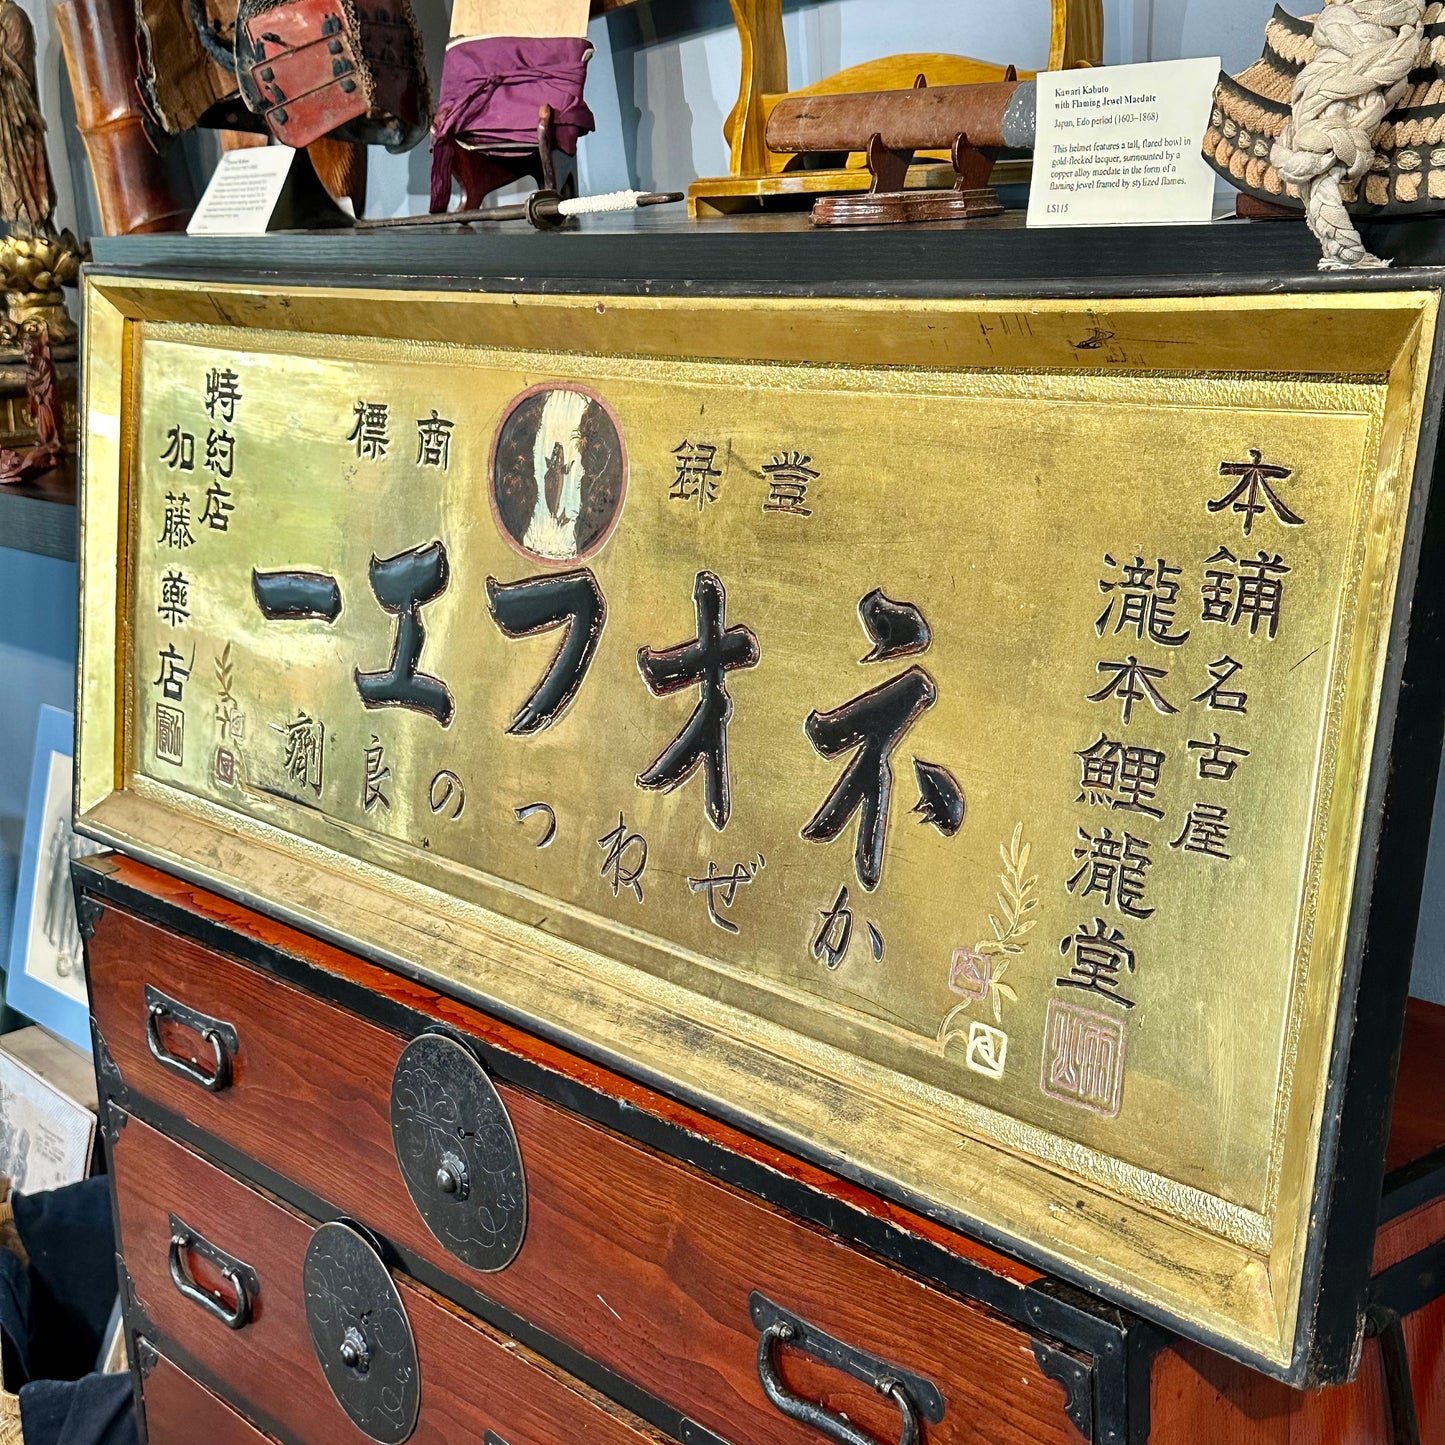 Kawari Kabuto
with Flaming Jewel Maedate
Japan, Edo period (1603–1868)
This helmet features a tall, flared bowl in
gold-flecked lacquer, surmounted by a
copper alloy maedate in the form of a
flaming jewel framed by stylized flames.
LS115
本舗 名古屋
瀧本鯉瀧堂
登録商標
ネオフエー
かぜねつの良劑
特約店
加藤藥店